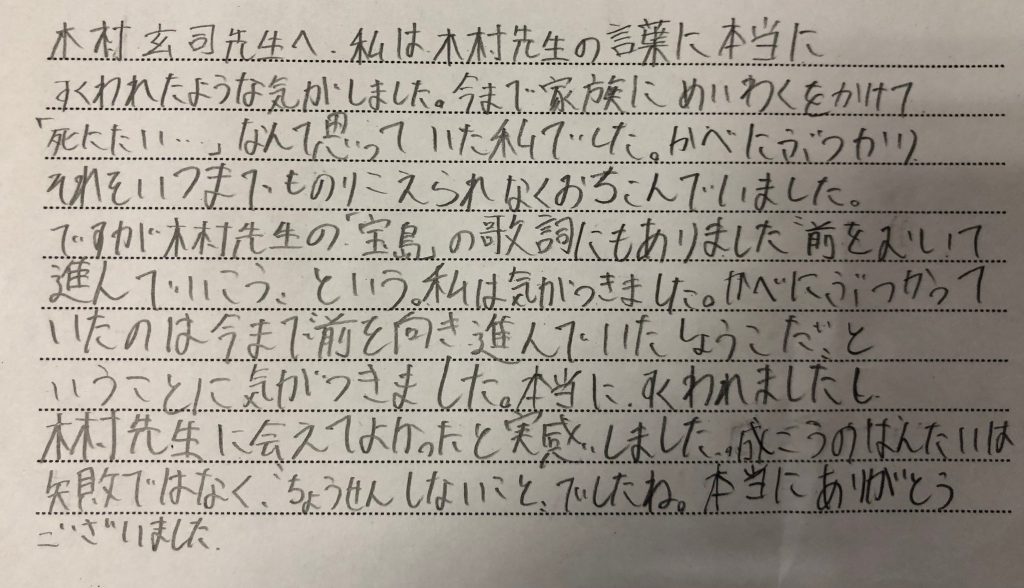 木村玄司先生へ.私は木村先生の言葉に本当に
すくわれたような気がしました。今まで家族にめいわくをかけて
「死にたい…」なんて思っていた私でした。かべにぶつかり
それをいつまでものりこえられなくおちこんでいました。
ですが木村先生の「宝島」の歌詞にもありました〝前をむいて
進んでいこう〟という。私は気がつきました。かべにぶつかって
いたのは今まで〝前を向き進んでいたしょうこだ〟と
いうことに気がつきました。本当に.すくわれましたし
木村先生に会えてよかったと実感しました.〝成こうのはんたいは
失敗ではなく〝ちょうせんしないこと〟でしたね。本当にありがとう
ございました.